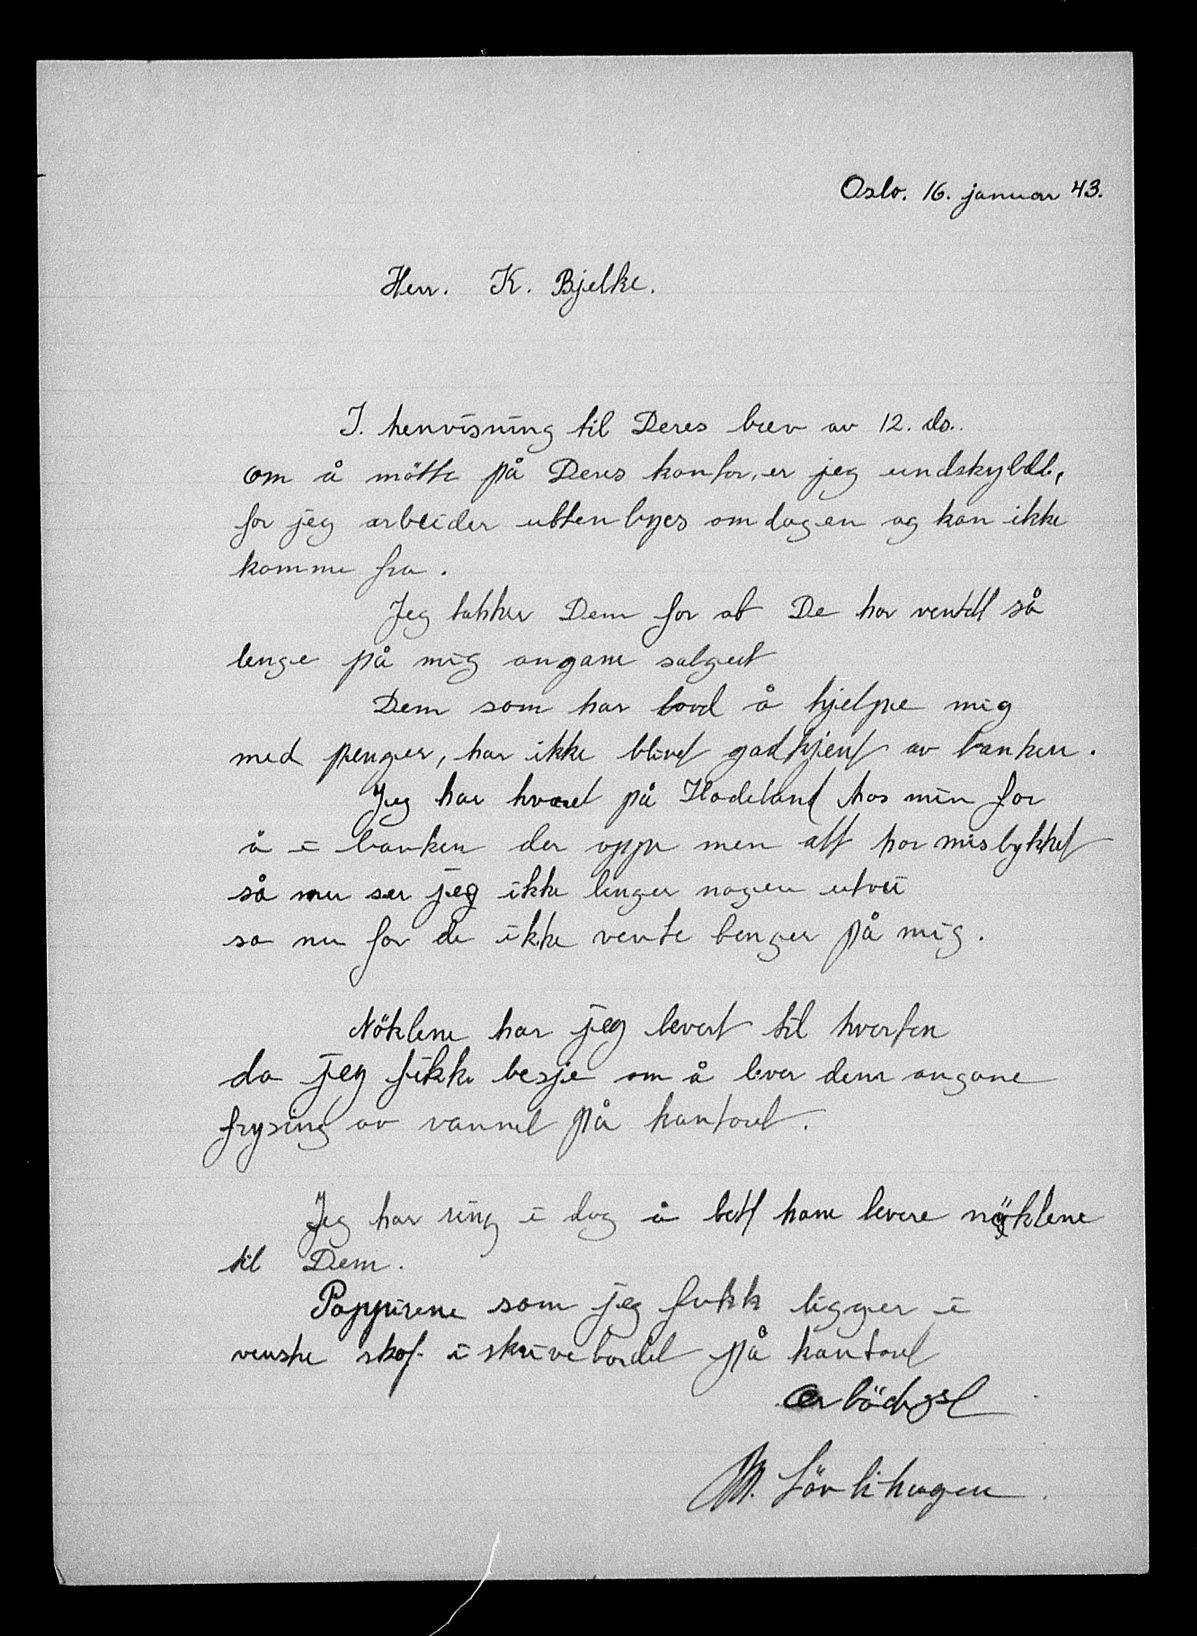 Oslo. 16. januar 43.
Herr. K. Bjelke.
I. henvisning til Deres brev av 12. ds.
om å mötte på Deres kontor, er jeg undskyldt,
for jeg arbeider utten byes om dagen og kan ikke
komme fra.
Jeg takker Dem for at De har ventett så
lenge på mig angane salget
Dem som har lovd å hjelpe mig
med penger, har ikke blivet godkjent av banken.
Jeg har hværet på Hadeland hos min far
å i banken der oppe men alt har mislykket
så nu ser jeg ikke lenger nogen utvei
så nu for de ikke vente lenger på mig.
Nöklene har jeg levert til
da jeg fikk besje om å lever dem angane
frysing av vannet på kantoret.
Jeg har ring i dag å bett ham levere nöklene
til Dem.
Pappirene som jeg fikk ligger i
venstre skof i skrivebordet på kantoret
Ærbödigst